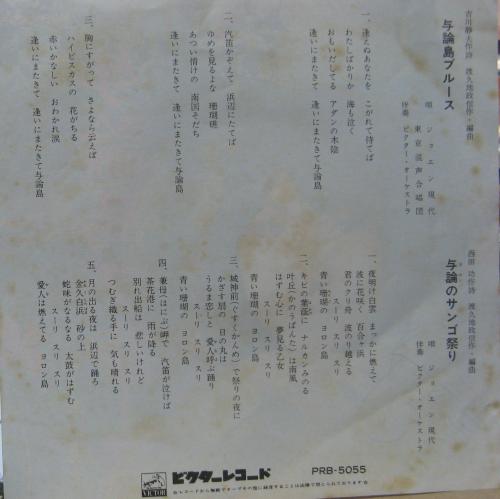 吉川静夫作詩 渡久地政信作・編曲
与論島ブルース
唄 ジョエン現代
東京混声合唱団
伴奏 ビクター・オーケストラ
一、逢えぬあなたを こがれて待てば
わたしばかりか 海も泣く
おもいだしてる アダンの木陰
逢いにまたきて 逢いにまたきて与論島
二、汽笛かぞえて 浜辺にたてば
ゆめを見るよな 珊瑚礁
あつい情けの 南国そだち
逢いにまたきて 逢いにまたきて与論島
三、胸にすがって さよなら云えば
ハイビスカスの 花がちる
赤いかなしい おわかれ涙
逢いにまたきて 逢いにまたきて与論島
西田 功作詩 渡久地政信作・編曲
与論のサンゴ祭り
唄 ジョエン現代
伴奏 ビクター・オーケストラ
一、夜明け白雲 まっかに燃えて
波に花咲く 百合ヶ浜
君のクリ舟 波のり越える
スーリ スリ スリ
青い珊瑚の ヨロン島
二、キビの葉蔭に ナルカンみのる
叶丘(かのうばんた)は南風
はずむ心に 夢見る乙女
スーリ スリ スリ
青い珊瑚の ヨロン島
三、城神前(ぐすくかんめ)で祭りの夜に
かざす扇の 日の丸は
うるま恋しと 愛人呼ぶ踊り
スーリ スリ スリ
青い珊瑚の ヨロン島
四、兼母(はにぶ)岬で 汽笛が泣けば
茶花港に 雨が降る
別れ出船は 悲しいけれど
スーリ スリ スリ
つむぎ織る手に 気も晴れる
五、月の出る夜は 浜辺で踊ろ
金久白浜 砂の上
蛇味がなるなる 太鼓がはずむ
スーリ スリ スリ
愛人は燃えてる ヨロン島
VICTOR
ビクターレコード
PRB-5055